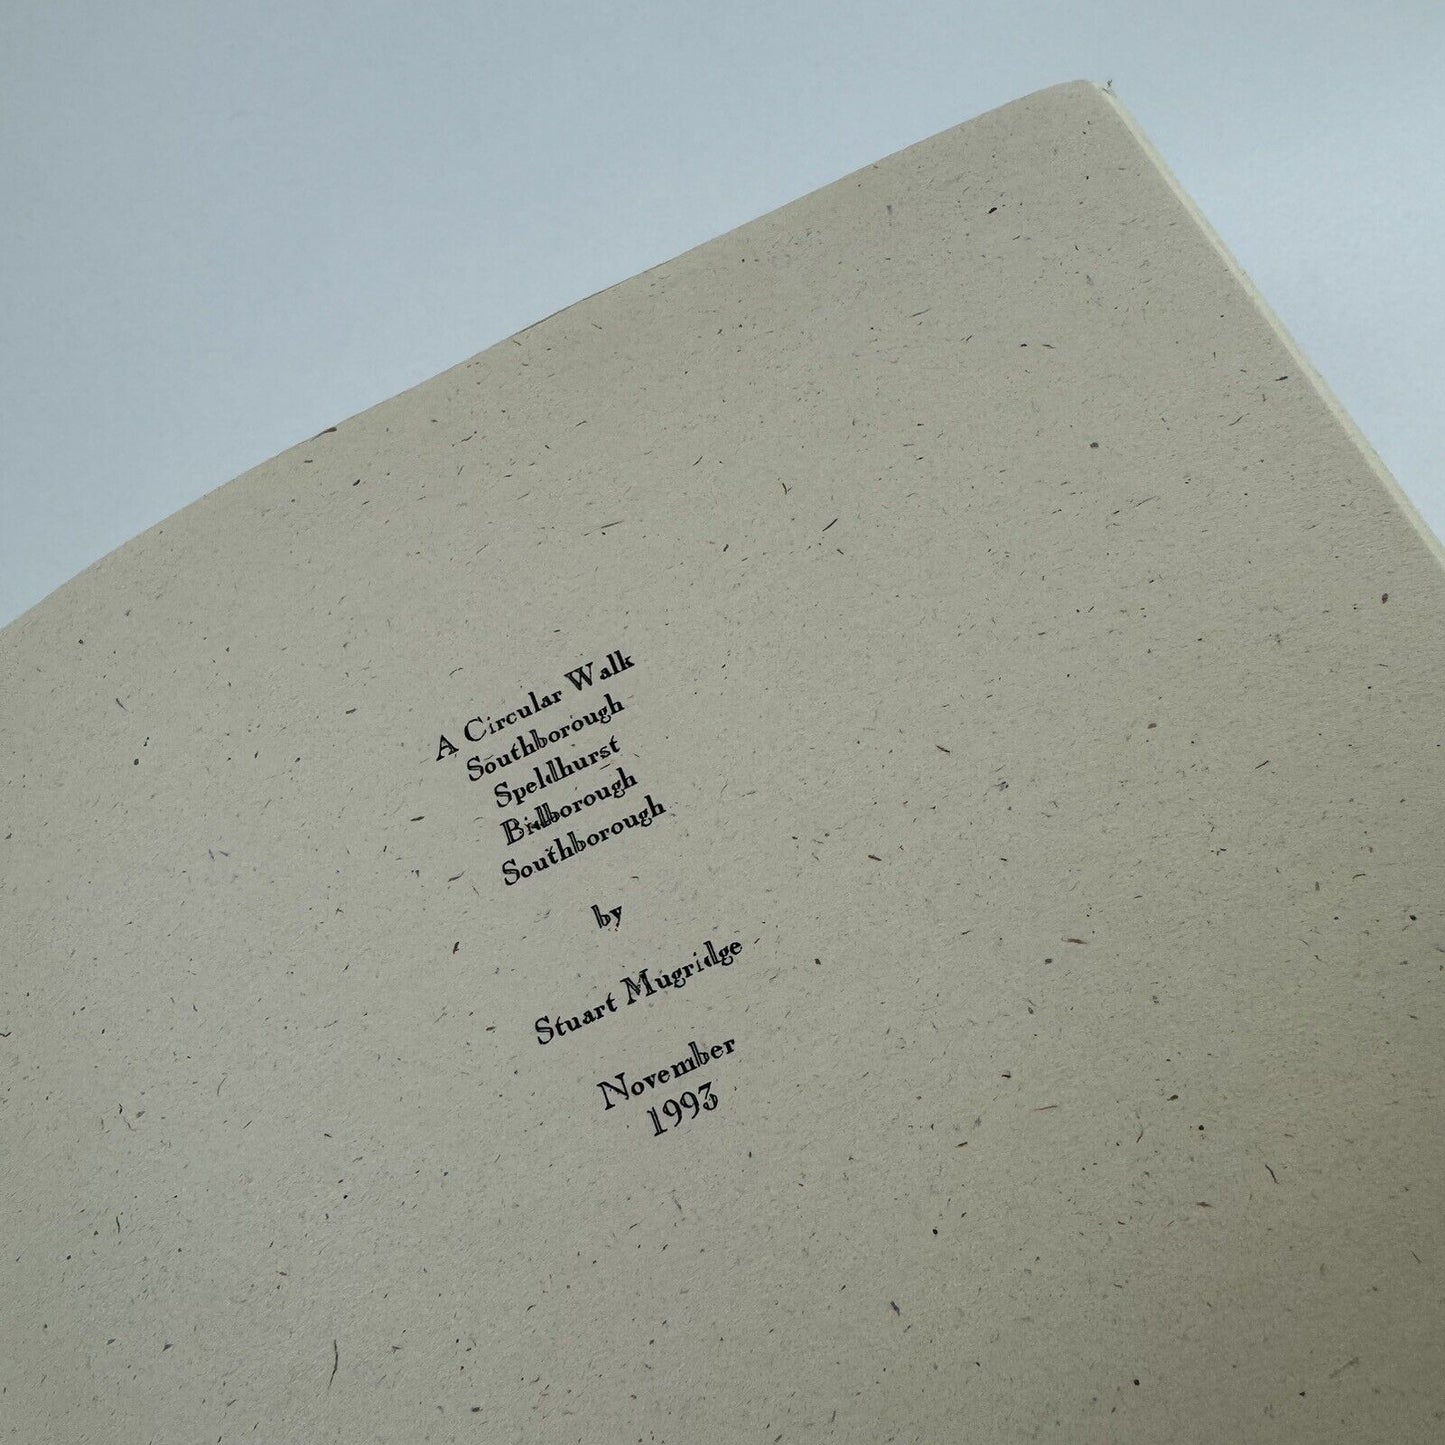 A Circular Walk
Southborough
Speldhurst
Bidborough
Southborough
by
Stuart Mugridge
November
1993